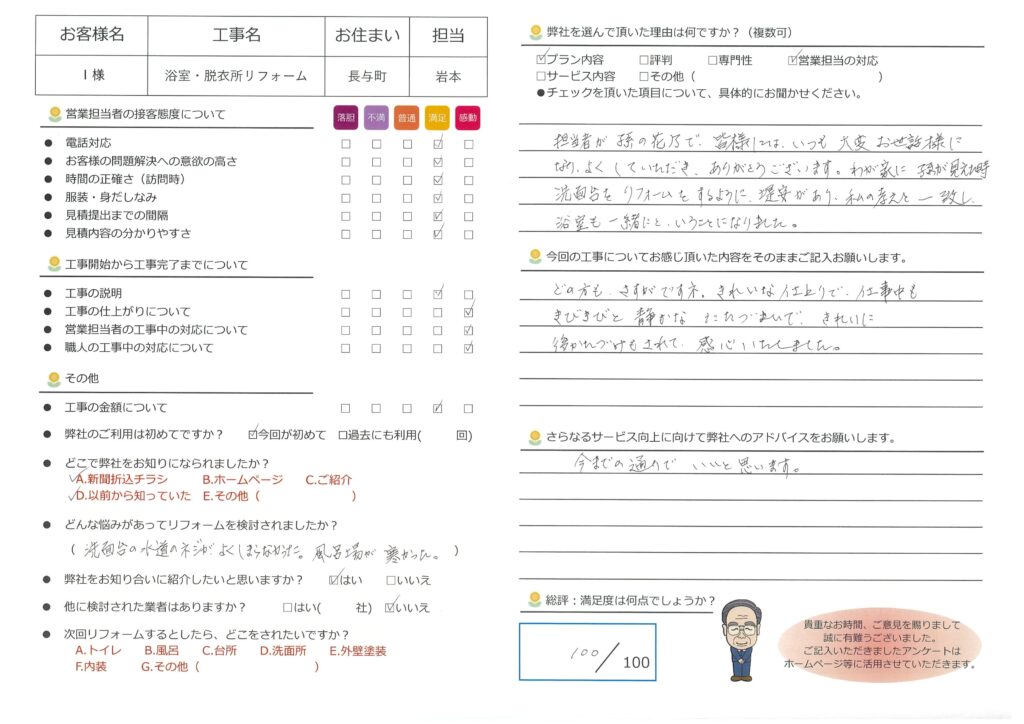 お客様名 工事名 お住まい 担当
I 様 浴室・脱衣所リフォーム 長与町 岩本
営業担当者の接客態度について 落胆 不満 普通 満足 感動
● 電話対応 □ □ □ ☑ □
● お客様の問題解決への意欲の高さ □ □ □ ☑ □
● 時間の正確さ（訪問時） □ □ □ ☑ □
● 服装・身だしなみ □ □ □ ☑ □
● 見積提出までの間隔 □ □ □ ☑ □
● 見積内容の分かりやすさ □ □ □ ☑ □
工事開始から工事完了までについて
● 工事の説明 □ □ □ ☑ □
● 工事の仕上がりについて □ □ □ □ ☑
● 営業担当者の工事中の対応について □ □ □ □ ☑
● 職人の工事中の対応について □ □ □ □ ☑
その他
● 工事の金額について □ □ □ ☑ □
● 弊社のご利用は初めてですか？ ☑今回が初めて □過去にも利用( 回)
● どこで弊社をお知りになられましたか？
✓A.新聞折込チラシ B.ホームページ C.ご紹介
✓D.以前から知っていた E.その他（ ）
● どんな悩みがあってリフォームを検討されましたか？
（ 洗面台の水道のネジが よくしまらなかった。風呂場が 寒かった。 ）
● 弊社をお知り合いに紹介したいと思いますか？ ☑はい □いいえ
● 他に検討された業者はありますか？ □はい( 社) ☑いいえ
● 次回リフォームするとしたら、どこをされたいですか？
A.トイレ B.風呂 C.台所 D.洗面所 E.外壁塗装
F.内装 G.その他（ ）
弊社を選んで頂いた理由は何ですか？（複数可）
☑プラン内容 □評判 □専門性 ☑営業担当の対応
□サービス内容 □その他（ ）
●チェックを頂いた項目について、具体的にお聞かせください。
担当者が 孫の花乃で、皆様には、いつも 大変 お世話様に
なり、よくしていただき、ありがとうございます。わが家に 孫が見えた時
洗面台を リフォームを するように、提案があり、私の考えと 一致し、
浴室も 一緒にと、いうことになりました。
今回の工事についてお感じ頂いた内容をそのままご記入お願いします。
どの方も、さすがですネ。きれいな 仕上りで、仕事中も
きびきびと 静かな たたづまいで、きれいに
後かたづけもされて、感心いたしました。
さらなるサービス向上に向けて弊社へのアドバイスをお願いします。
今までの通りで いいと 思います。
総評：満足度は何点でしょうか？
100／100
貴重なお時間、ご意見を賜りまして
誠に有難うございました。
ご記入いただきましたアンケートは
ホームページ等に活用させていただきます。